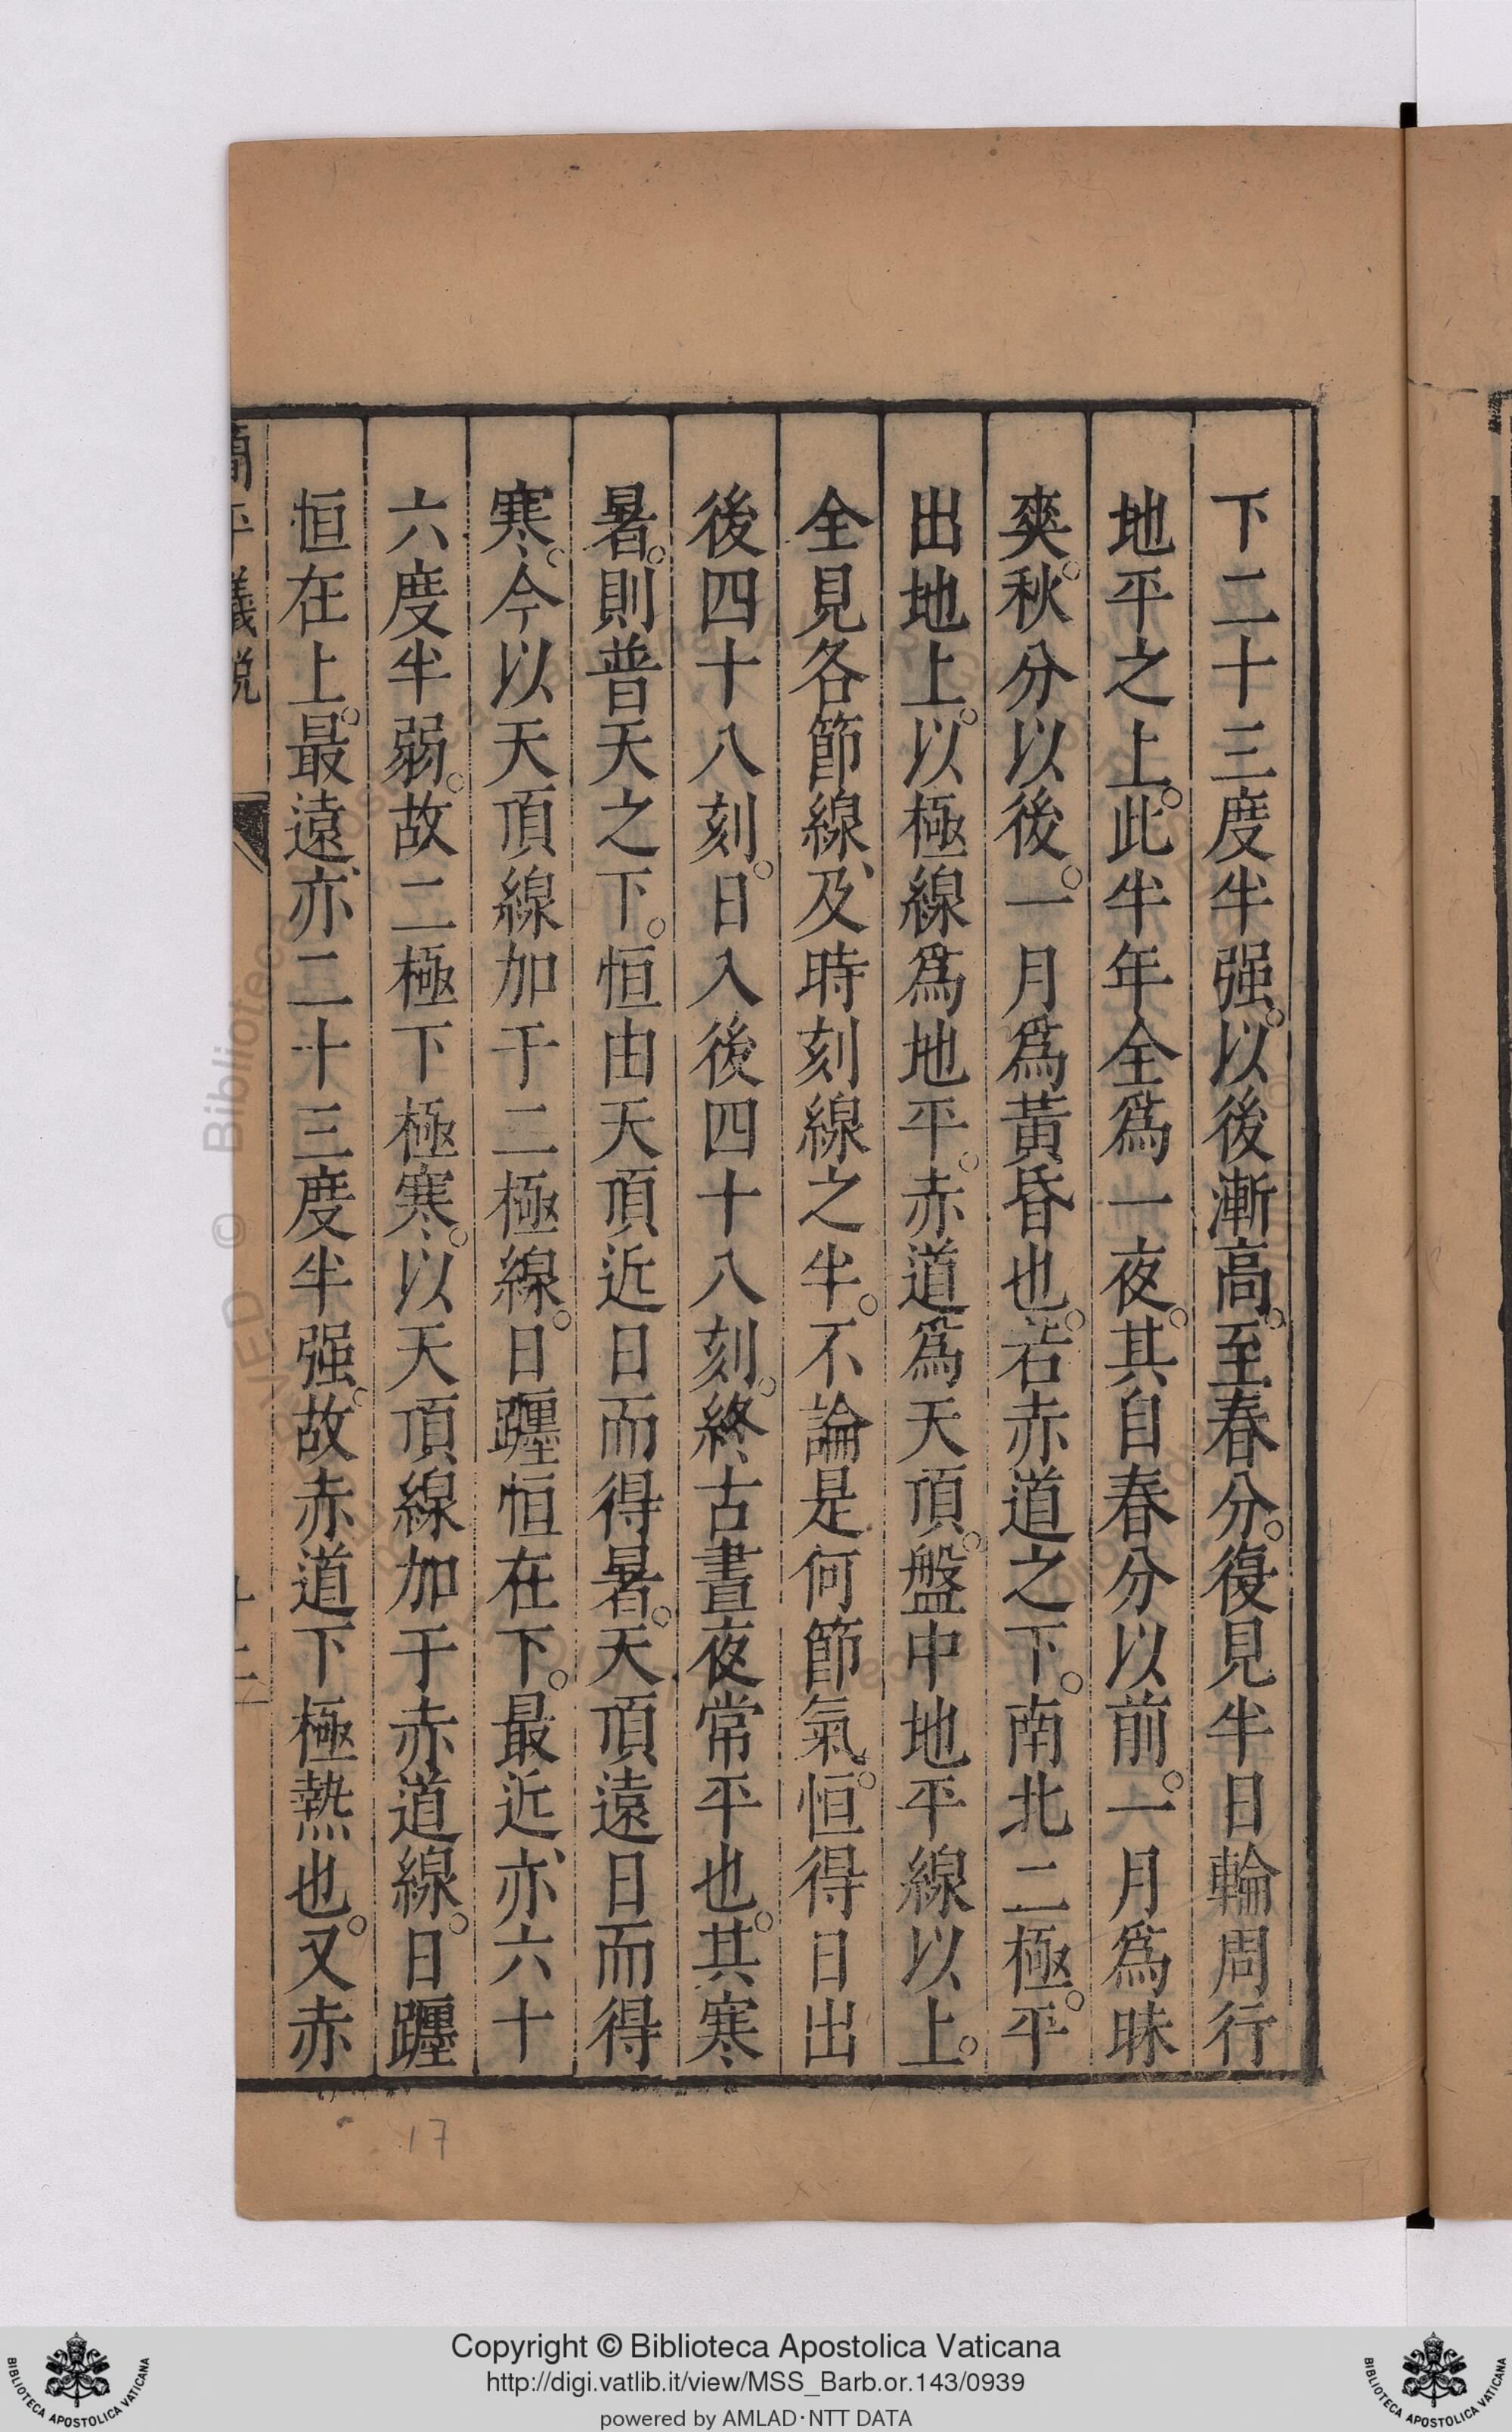 下二十三度半强。以後漸高。至春分。復見半日輪周行
地平之上。此半年全爲一夜。其自春分以前。一月爲昧
爽。秋分以後。一月爲黃昏也。若赤道之下。南北二極。平
出地上。以極線爲地平。赤道爲天頂。盤中地平線以上。
全見各節線、及時刻線之半。不論是何節氣。恒得日出
後四十八刻。日入後四十八刻。終古晝夜常平也。其寒
暑。則普天之下。恒由天頂近日而得暑。天頂遠日而得
寒。今以天頂線加于二極線。日躔恒在下。最近、亦六十
六度半弱。故二極下極寒。以天頂線加于赤道線。日躔
恒在上。最遠、亦二十三度半强。故赤道下極熱也。又赤
簡平儀說
十二
17
Copyright © Biblioteca Apostolica Vaticana
http://digi.vatlib.it/view/MSS_Barb.or.143/0939
powered by AMLAD·NTT DATA
BIBLIOTECA APOSTOLICA VATICANA
BIBLIOTECA APOSTOLICA VATICANA